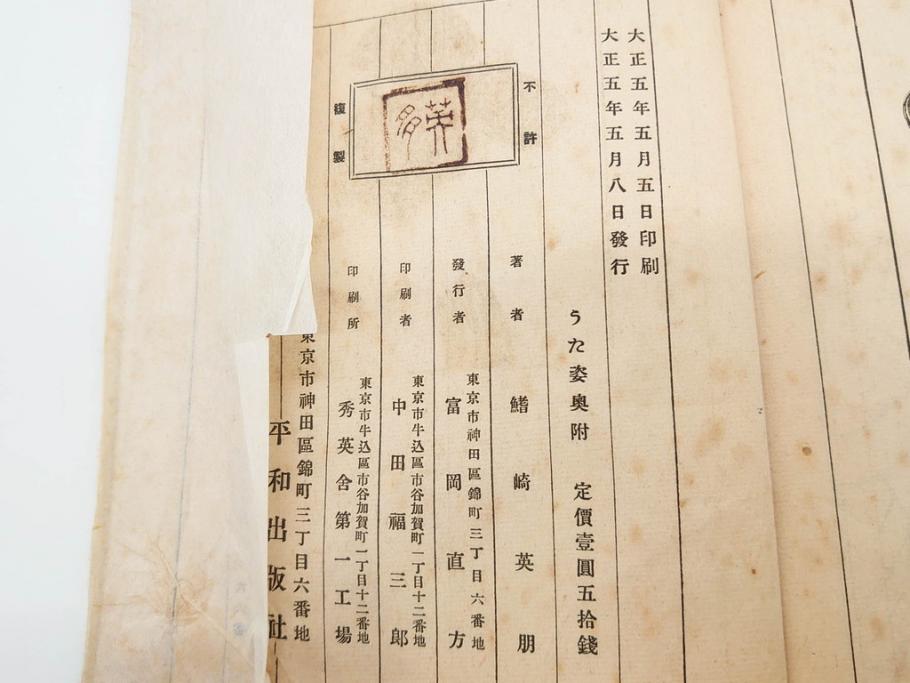 大正五年五月五日印刷
大正五年五月八日發行
うた姿奧附　定價壹圓五拾錢
不許
複製
著者　鰭崎英朋
發行者　東京市神田區錦町三丁目六番地
富岡直方
印刷者　東京市牛込區市谷加賀町一丁目十二番地
中田福三郎
印刷所　東京市牛込區市谷加賀町一丁目十二番地
秀英舍第一工場
東京市神田區錦町三丁目六番地
平和出版社